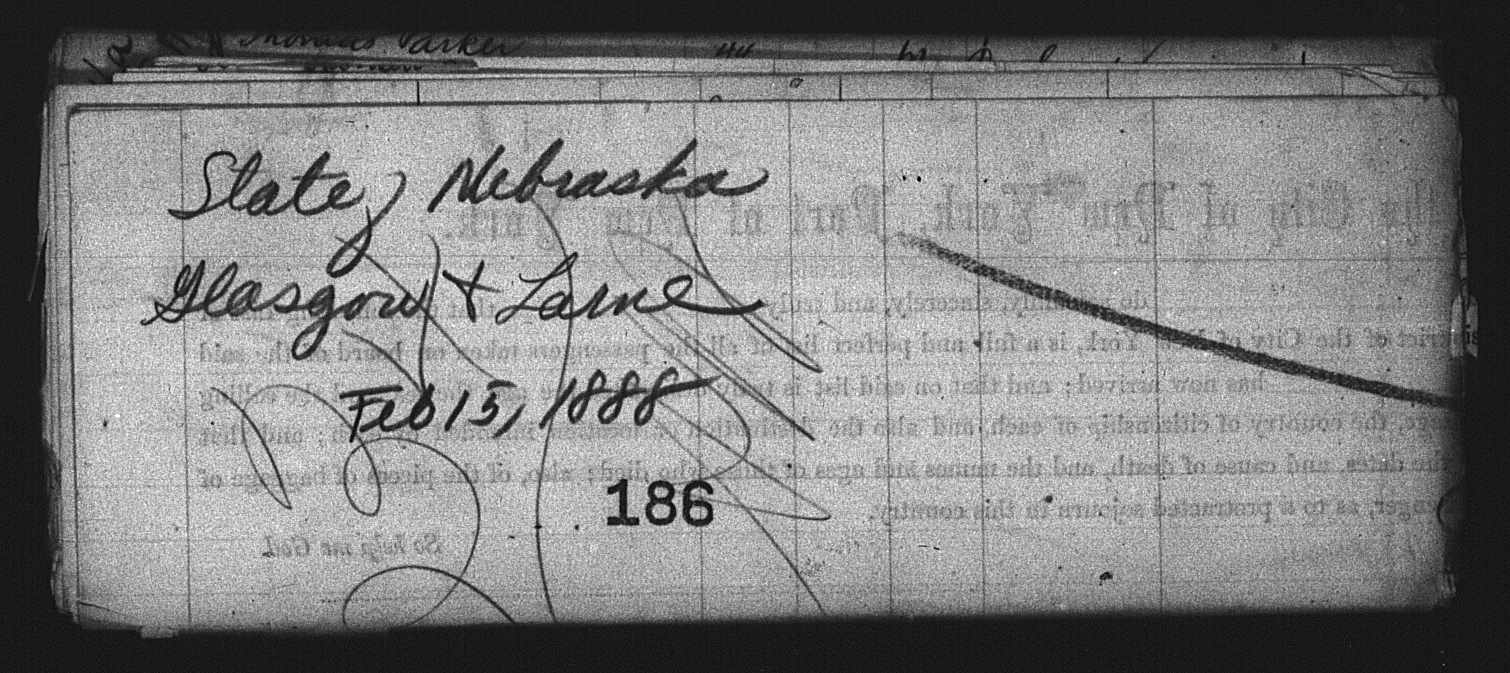 Thomas Parker 44
State of Nebraska
Glasgow & Larne
Feb 15, 1888
186
the City of New York, Port of New York.
do solemnly, sincerely, and truly
District of the City of New York, is a full and perfect list of all the passengers taken on board of the said
has now arrived; and that on said list is
age, the country of citizenship of each, and also the
the dates, and cause of death, and the names and ages of those who died; also, of the pieces of baggage of
passenger, as to a protracted sojourn in this country.
So help me God.